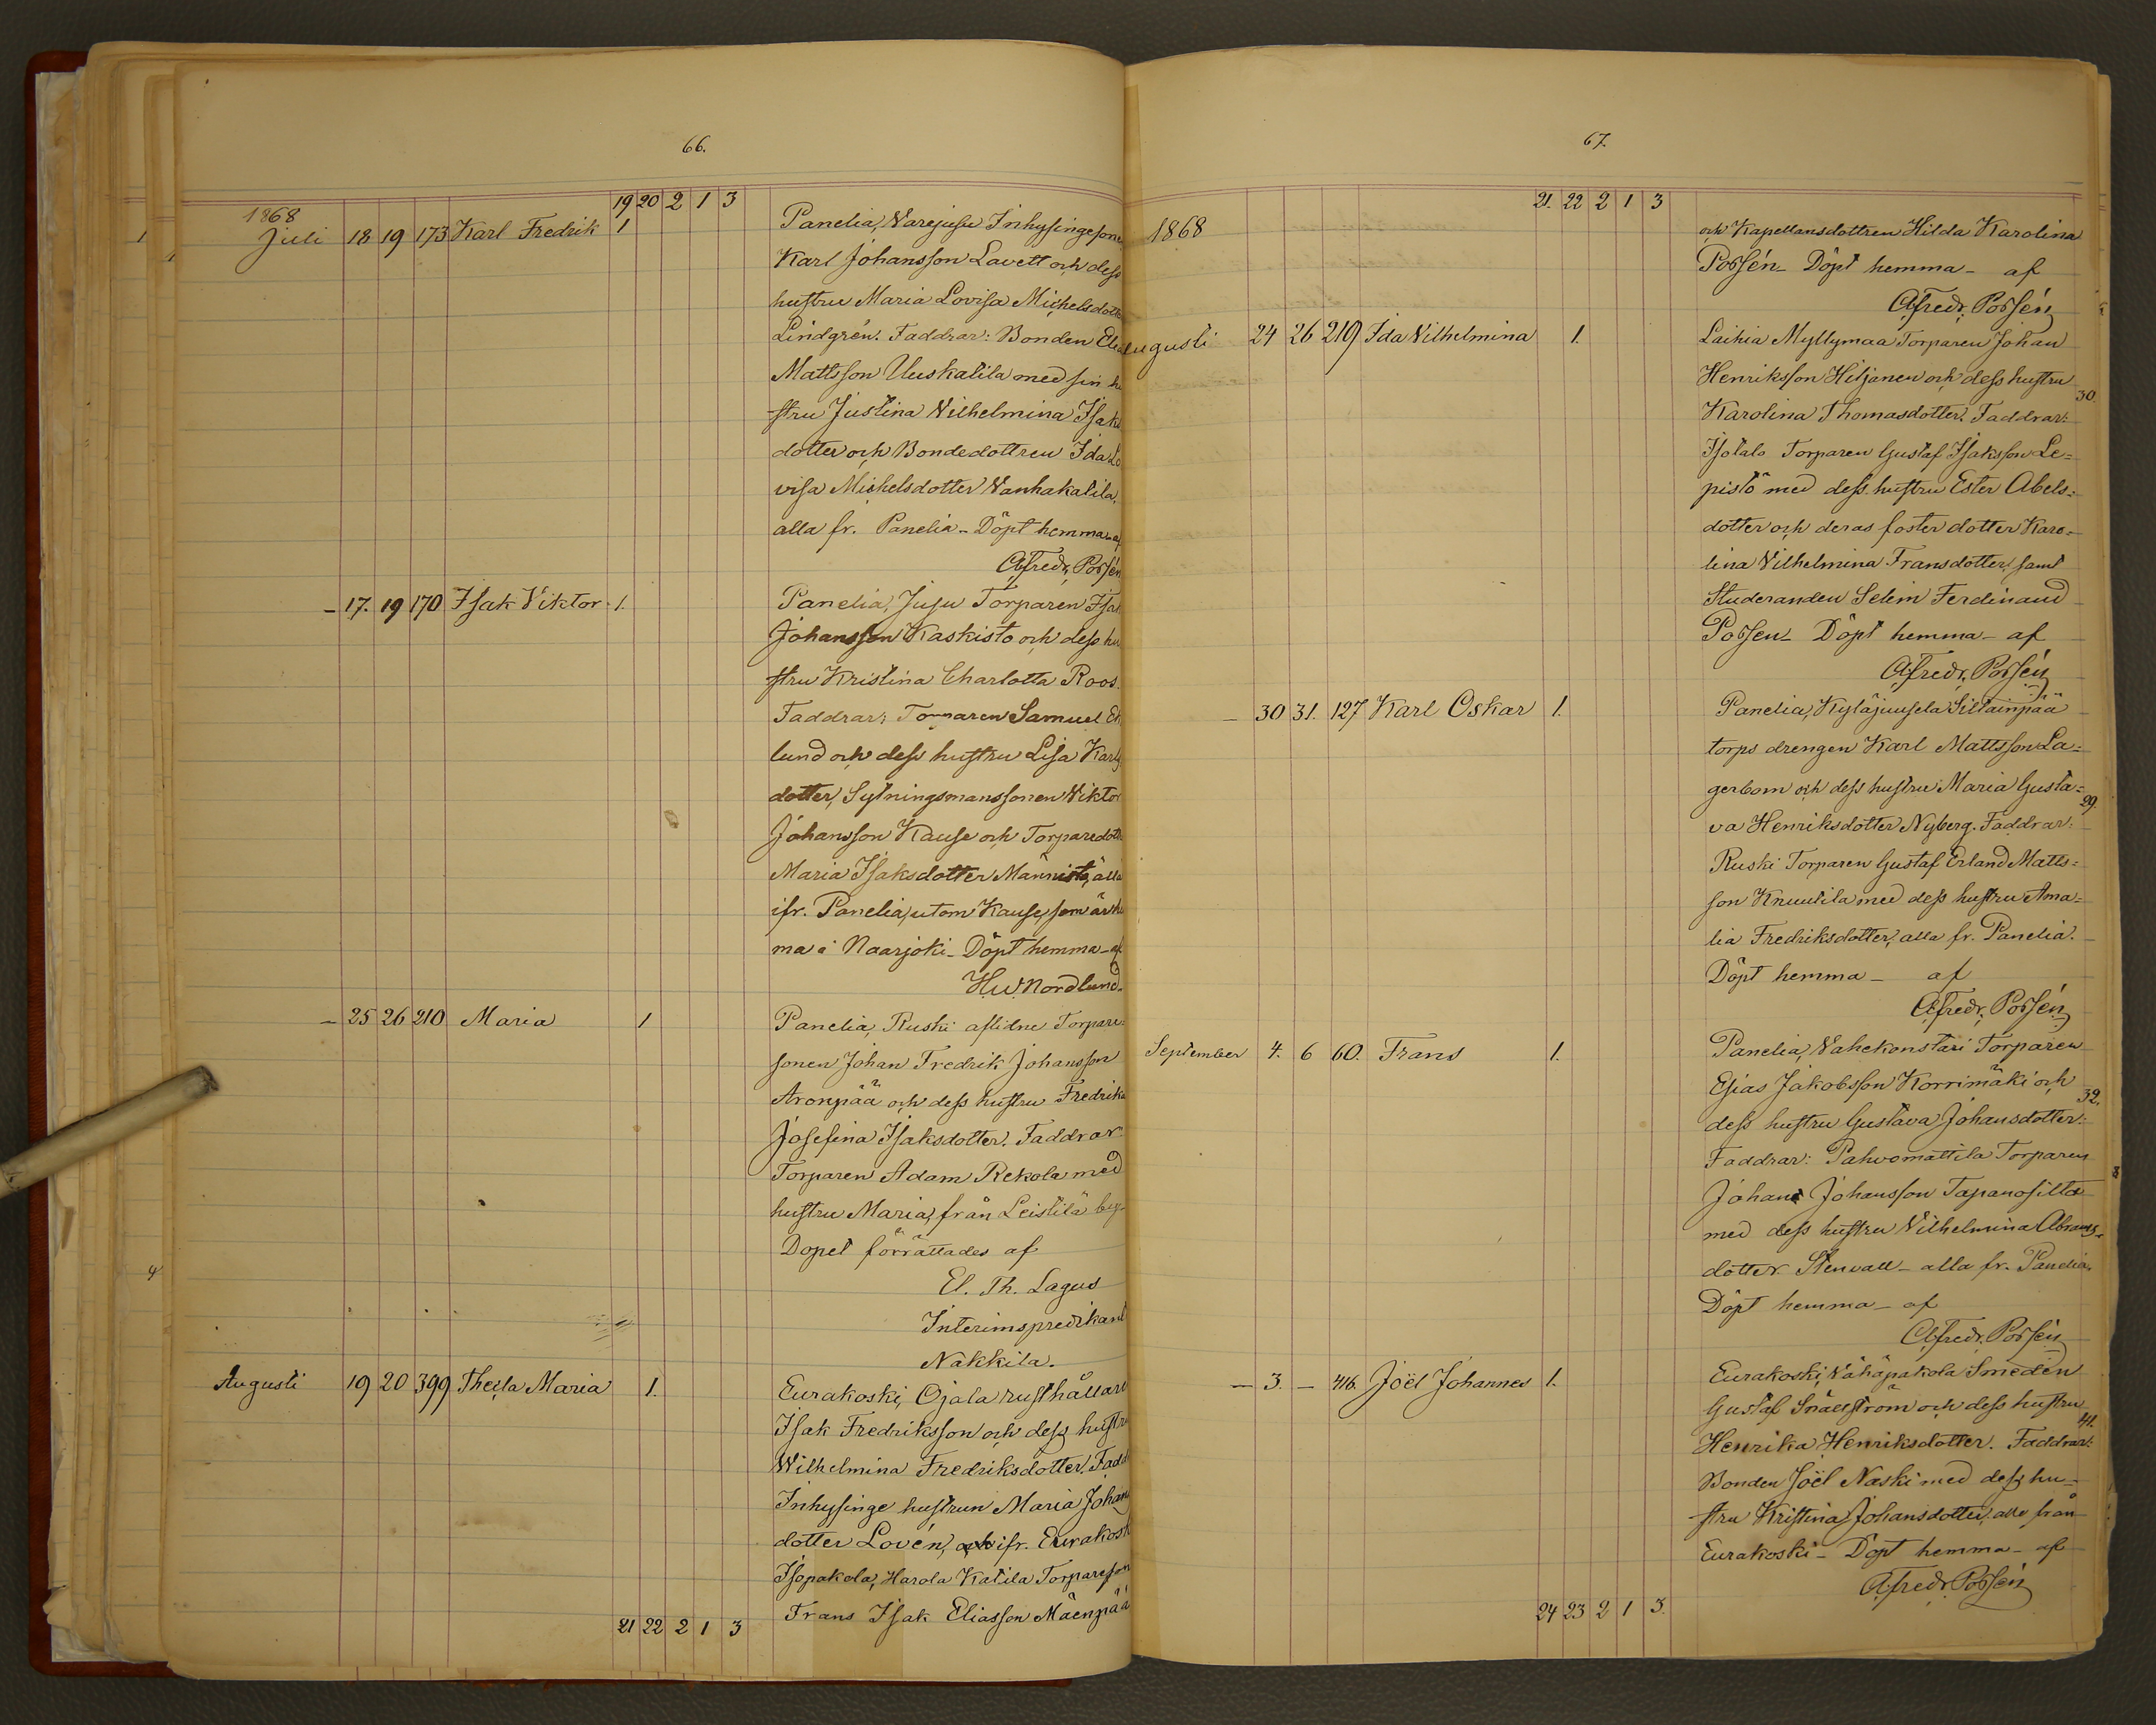 66.
19 20 2 1 3
1868
Juli 18 19 173 Karl Fredrik 1
Panelia, Varejusu Inhysingesone
Karl Johansson Lavett och dess
hustru Maria Lovisa Michelsdotter
Lindgrén. Faddrar: Bonden
Mattsson Uuskatila med sin hu
stru Justina Vilhelmina Isaks
dotter och Bondedottren Ida Lo
visa Michelsdotter Vanhakatila,
alla fr. Panelia - Döpt hemma - af
Alfredr. Porsén
- 17. 19 170 Isak Viktor 1.
Panelia, Jusu Torparen Isak
Johansson Kaskisto och dess hu
stru Kristina Charlotta Roos.
Faddrar: Torparen Samuel Ek
lund och dess hustru Lisa Karls
dotter, Sytningsmanssonen Viktor
Johansson Kause och Torparedottr
Maria Isaksdotter Männistö, alla
ifr. Panelia, utom Kause, som är he
ma i Naarjoki - Döpt hemma - af
H.W. Nordlund.
- 25 26 210 Maria 1
Panelia, Ruski aflidne Torpare=
sonen Johan Fredrik Johansson
Aronpää och dess hustru Fredrika
Josefina Isaksdotter. Faddrar
Torparen Adam Rekola med
hustru Maria, från Leistilä by.
Dopet förrättades af
El. Th. Lagus
Interimspredikant
Nakkila.
Augusti 19 20 399 Theila Maria 1.
Eurakoski, Ojala rusthållare
Isak Fredriksson och dess hustru
Wilhelmina Fredriksdotter. Fadd
Inhysinge hustrun Maria Johans
dotter Lovén, och ifr. Eurakosk
Isopakola, Harola Katila Torpareson
Frans Isak Eliasson Mäenpää
21 22 2 1 3
67.
21. 22 2 1 3
1868
och Kapellansdottren Hilda Karolina
Porsén - Döpt hemma - af
Alfredr. Porsén
Augusti 24 26 219 Ida Vilhelmina 1.
Laihia Myllymaa Torparen Johan
Henriksson Hiljanen och dess hustru
30.
Karolina Thomasdotter. Faddrar:
Isotalo Torparen Gustaf Isaksson Le=
pistö med dess hustru Ester Abels=
dotter och deras foster dotter Karo=
lina Vilhelmina Fransdotter, samt
Studeranden Selim Ferdinand
Porsen - Döpt hemma - af
Alfredr. Porsén
- 30 31. 127 Karl Oskar 1.
Panelia, Kyläjuusela Siltainpää
torps drengen Karl Mattsson La=
gerbom och dess hustru Maria Gusta=
29.
va Henriksdotter Nyberg. Faddrar:
Ruski Torparen Gustaf Erland Matts=
son Knuutila med dess hustru Ama=
lia Fredriksdotter, alla fr. Panelia.
Döpt hemma - af
Alfredr. Porsén
September 4. 6 60. Frans 1.
Panelia, Vahekonstari Torparen
Esias Jakobsson Korrimäki och
32.
dess hustru Gustava Johansdotter.
Faddrar: Pahvomattila Torparen
Johan Johansson Tapanosilta
med dess hustru Vilhelmina Abrams=
dotter Stenvall - alla fr. Panelia.
Döpt hemma - af
Alfredr. Porsén
- 3. - 416. Joël Johannes 1.
Eurakoski, Vähäpakola Smeden
Gustaf Snällström och dess hustru
41.
Henrika Henriksdotter. Faddrar:
Bonden Joël Naski med dess hu=
stru Kristina Johansdotter, alla från
Eurakoski - Döpt hemma - af
Alfredr. Porsén
24 23 2 1 3.